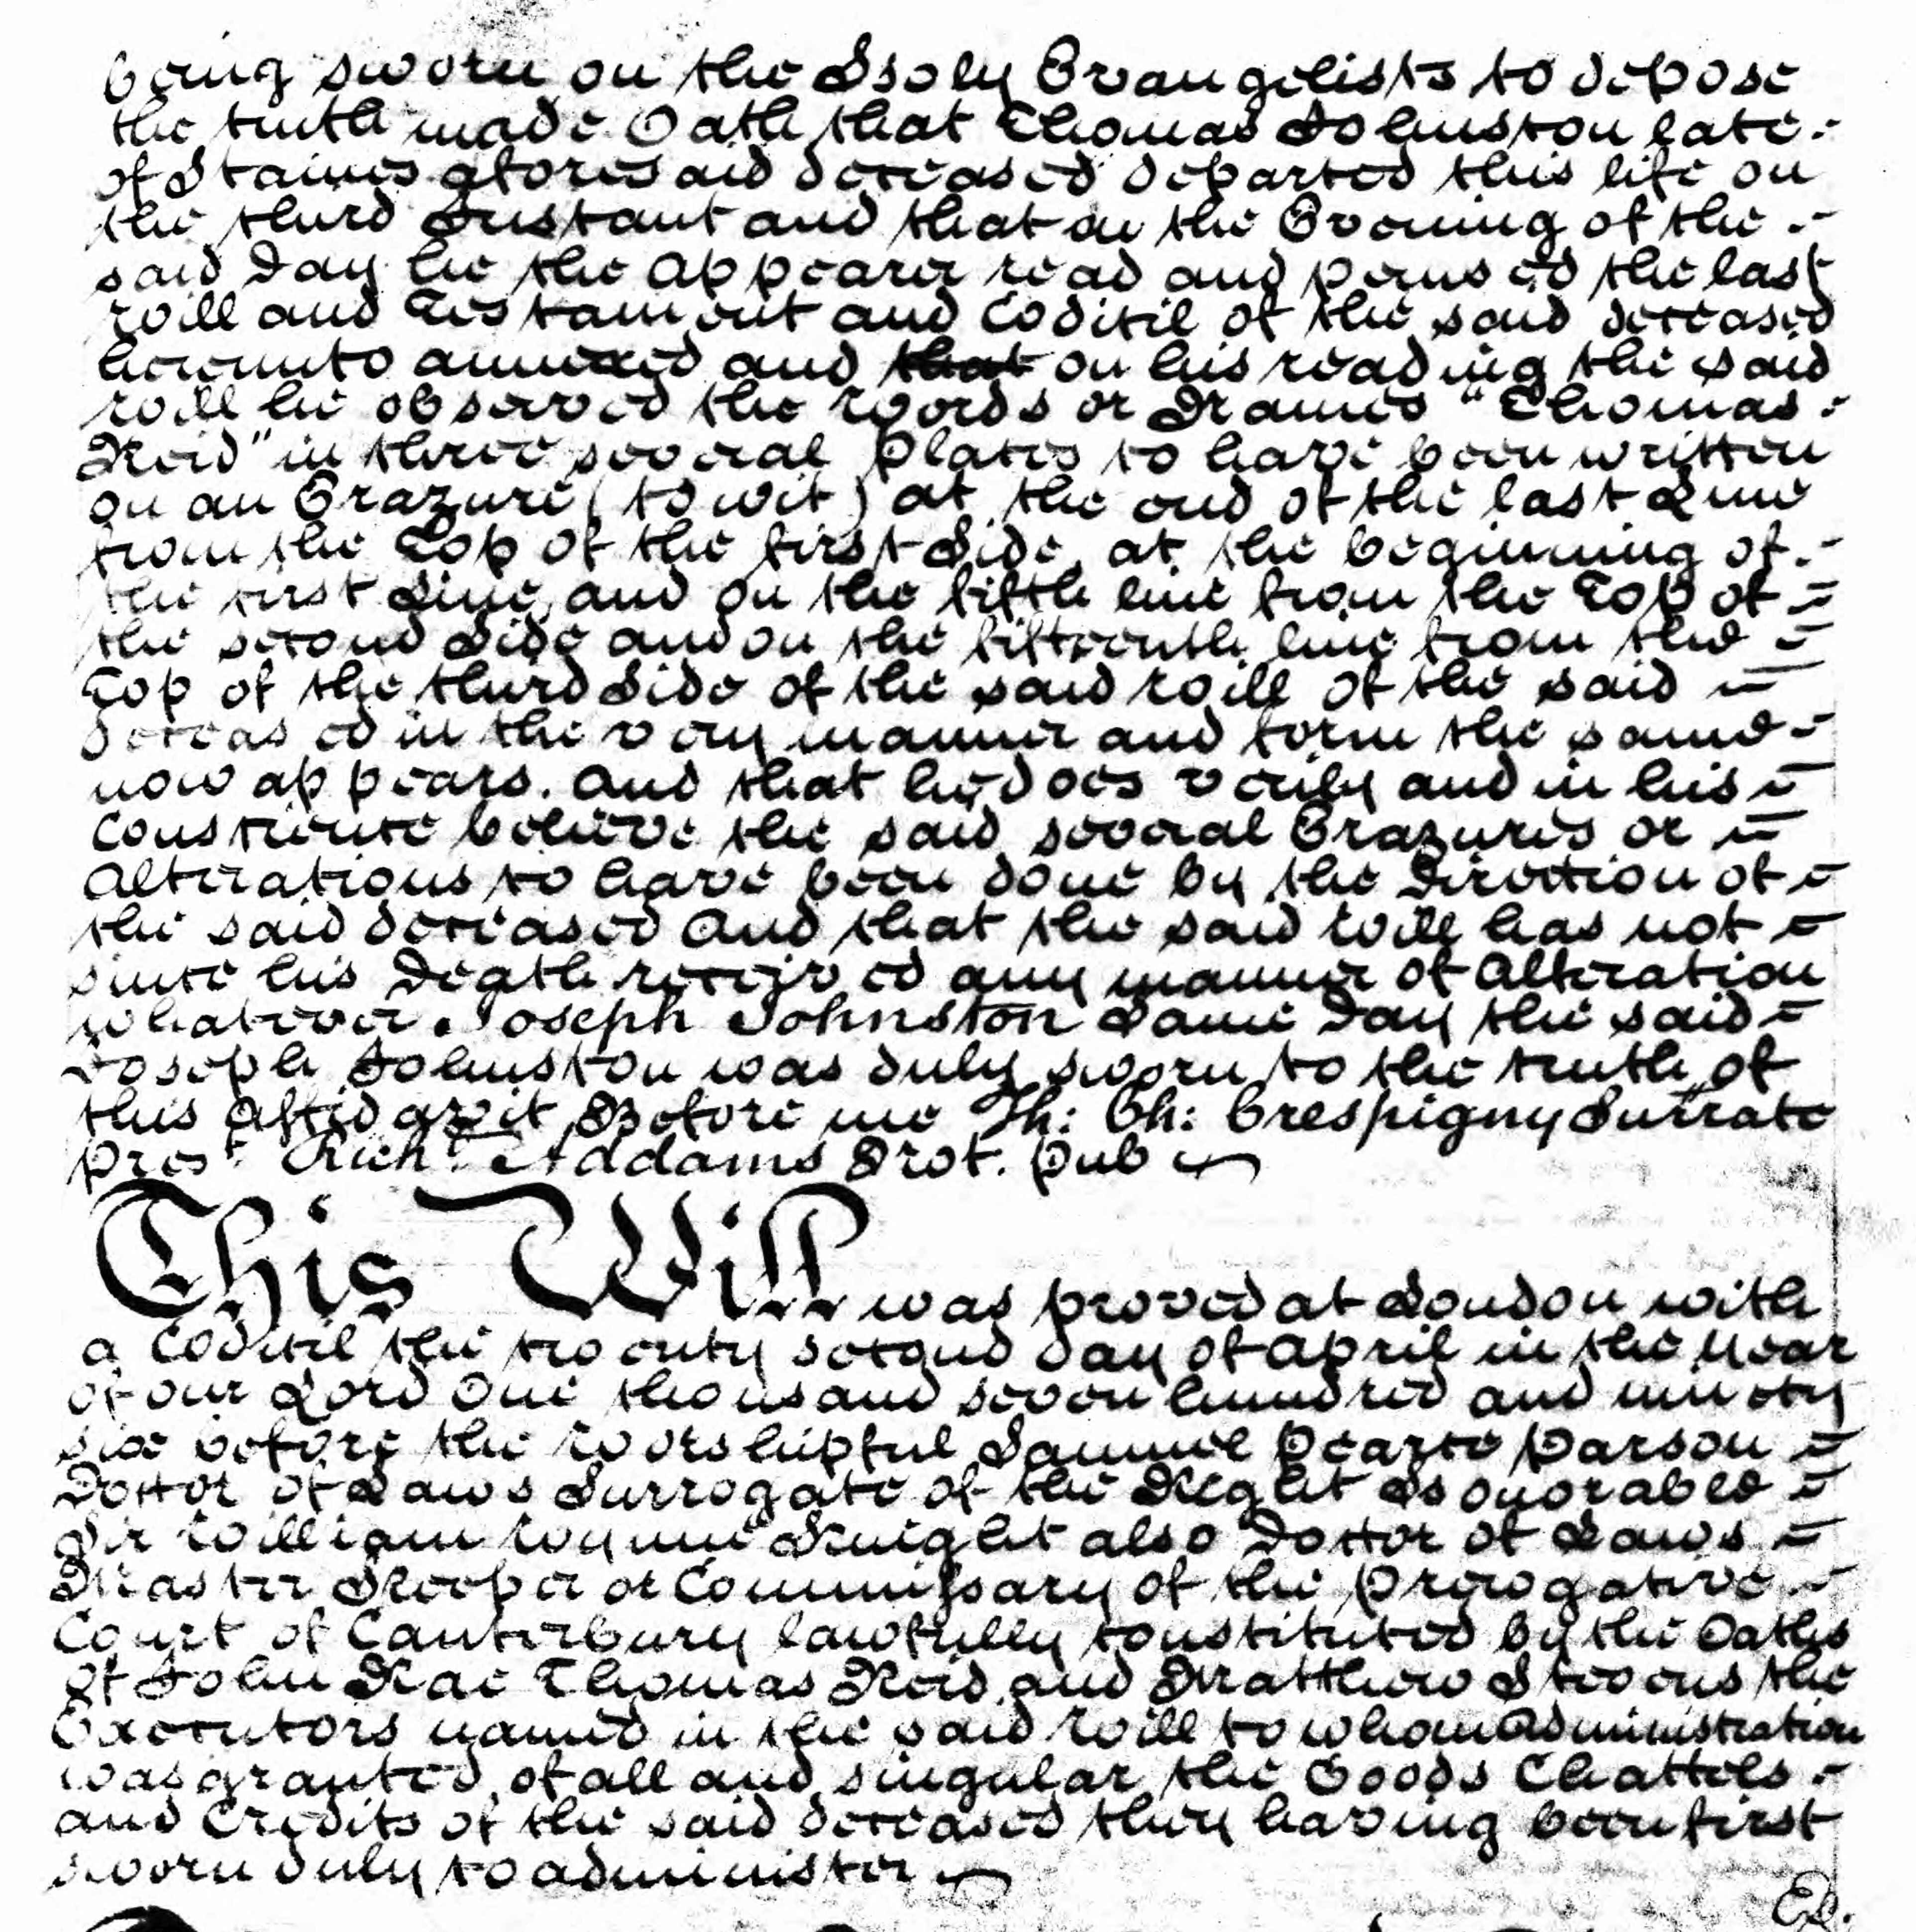 being sworn on the Holy Evangelists to depose
the truth made Oath that Thomas Johnston late
of Staines aforesaid deceased departed this life on
the third Instant and that on the Evening of the
said Day he the Appearer read and perused the last
Will and Testament and Codicil of the said deceased
hereunto annexed and that on his reading the said
Will he observed the Words or Names "Thomas
Reid" in three several Places to have been written
on an Erazure (to wit) at the end of the last Line
from the Top of the first Side, at the beginning of
the first Line, and on the fifth line from the Top of
the second Side and on the fifteenth line from the
Top of the third Side of the said Will of the said
deceased in the very manner and form the same
now appears. And that he does verily and in his
Conscience believe the said several Erazures or
Alterations to have been done by the Direction of
the said deceased And that the said Will has not
since his Death received any manner of Alteration
whatever. Joseph Johnston Same Day the said
Joseph Johnston was duly sworn to the truth of
this Affidavit Before me Th: Ch: Crespigny Surrate
prest. Richd. Addams Not. Pub
This Will was proved at London with
a Codicil the twenty second day of April in the Year
of our Lord One thousand seven hundred and ninety
six before the Worshipful Samuel Pearce Parson
Doctor of Laws Surrogate of the Right Honorable
Sir William Wynne Knight also Doctor of Laws
Master Keeper or Commissary of the Prerogative
Court of Canterbury lawfully constituted by the Oaths
of John Rae Thomas Reid and Matthew Stevens the
Executors named in the said Will to whom Administration
was granted of all and singular the Goods Chattels
and Credits of the said deceased they having been first
sworn duly to administer
Ex.